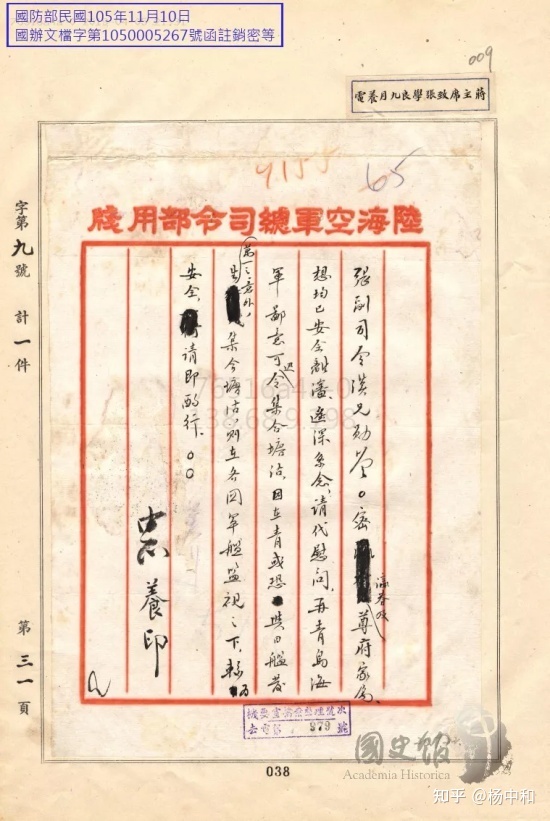 國防部民國105年11月10日
國辦文檔字第1050005267號函註銷密等
009
蔣主席致張學良九月養電
65
陸海空軍總司令部用牋
張副司令漢兄勛鑒○密 尊府家屬,
想均已安全離瀋,遙深系念,請代慰問,再青島海
軍鄙意可迅令集合塘沽,因在青或恐與日艦發
生萬一之意外,集合塘沽,則在各國軍艦監視之下,較
安全,請即酌行.○○
中正 養印
字第九號 計一件 第三一頁
879
038
國史館
Academia Historica
知乎 @杨中和